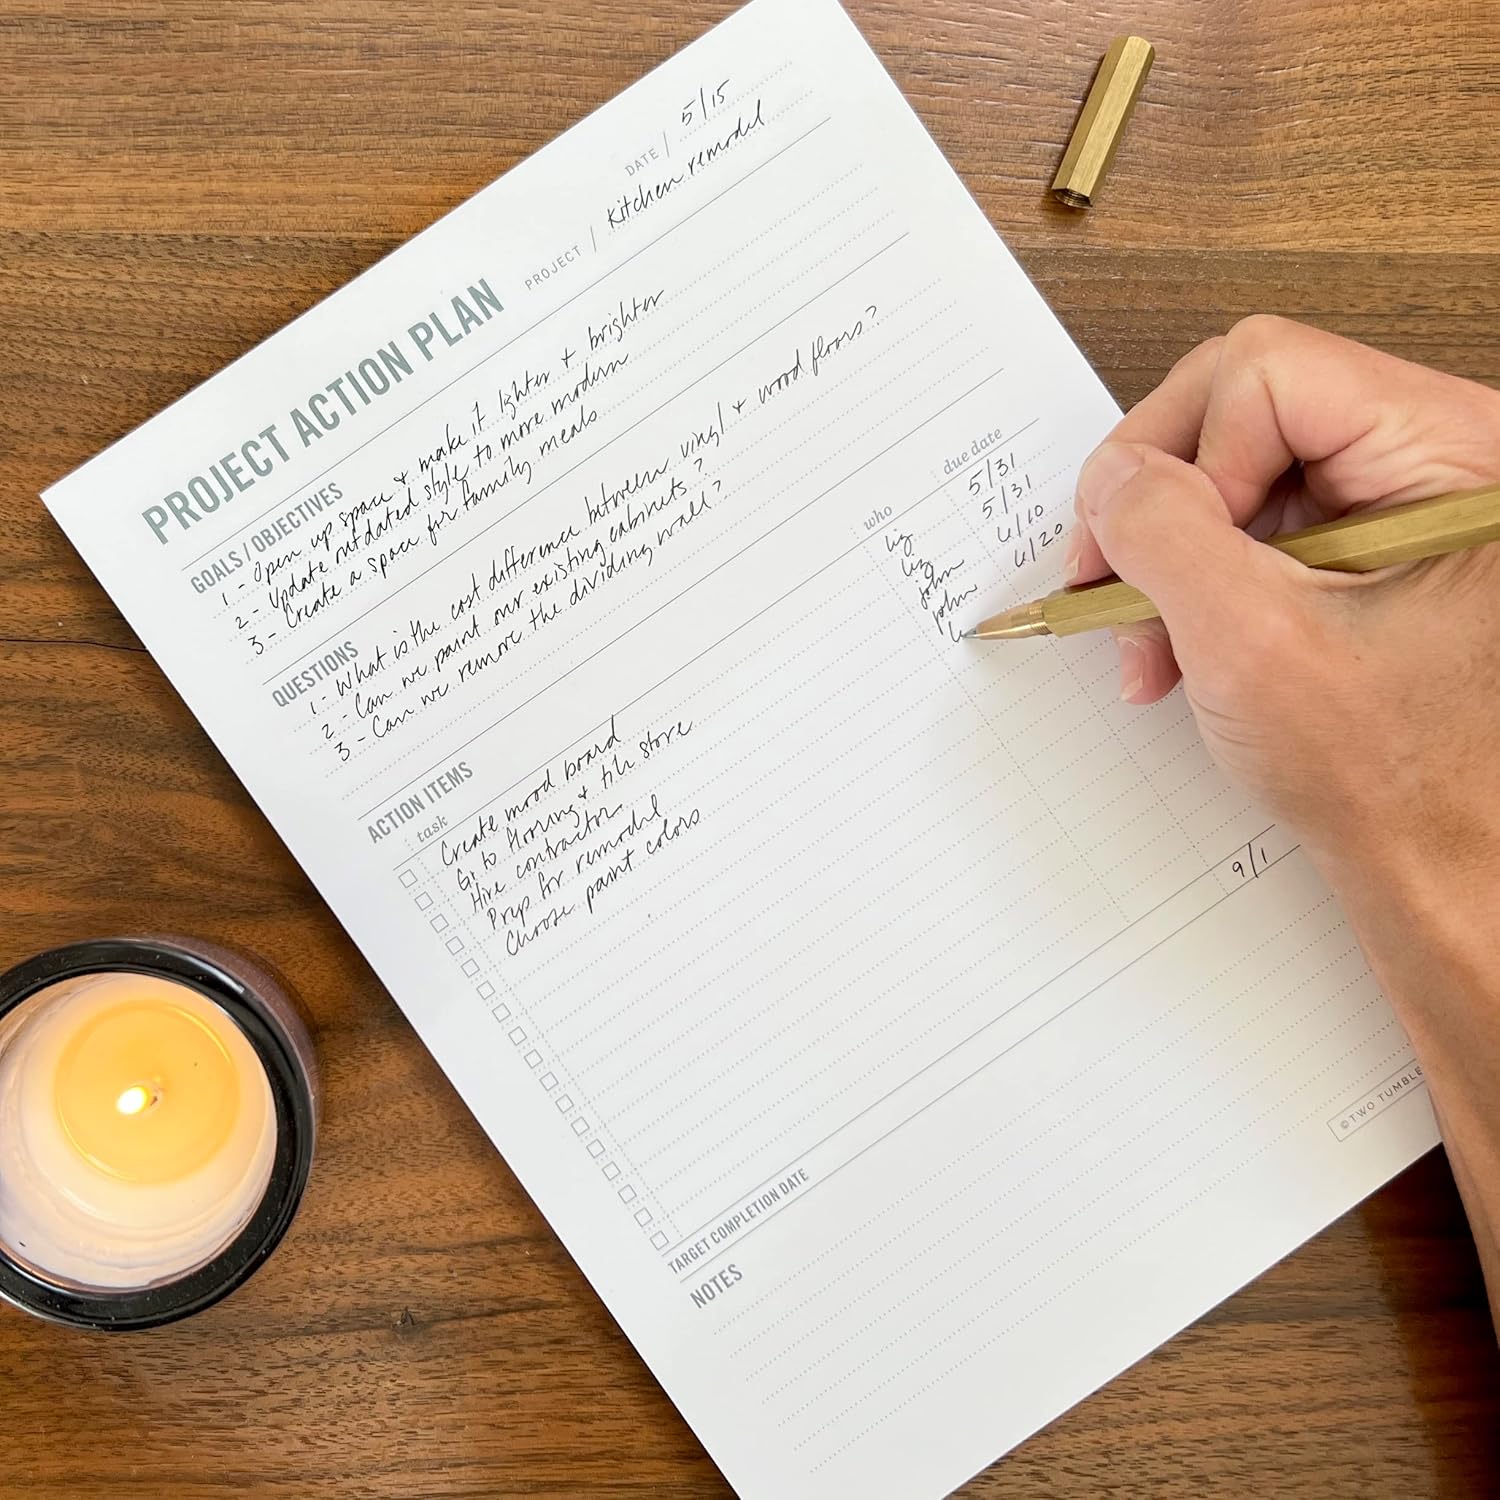 DATE / 5/15
PROJECT ACTION PLAN PROJECT / Kitchen remodel
GOALS / OBJECTIVES
1 - Open up space + make it lighter + brighter
2 - Update outdated style to more modern
3 - Create a space for family meals
QUESTIONS
1 - What is the cost difference between vinyl + wood floors?
2 - Can we paint our existing cabinets?
3 - Can we remove the dividing wall?
ACTION ITEMS
task who due date
Create mood board Liz 5/31
Go to flooring + tile store Liz 5/31
Hire contractor John 6/10
Prep for remodel John 6/20
Choose paint colors L
TARGET COMPLETION DATE 9/1
NOTES
© TWO TUMBLE